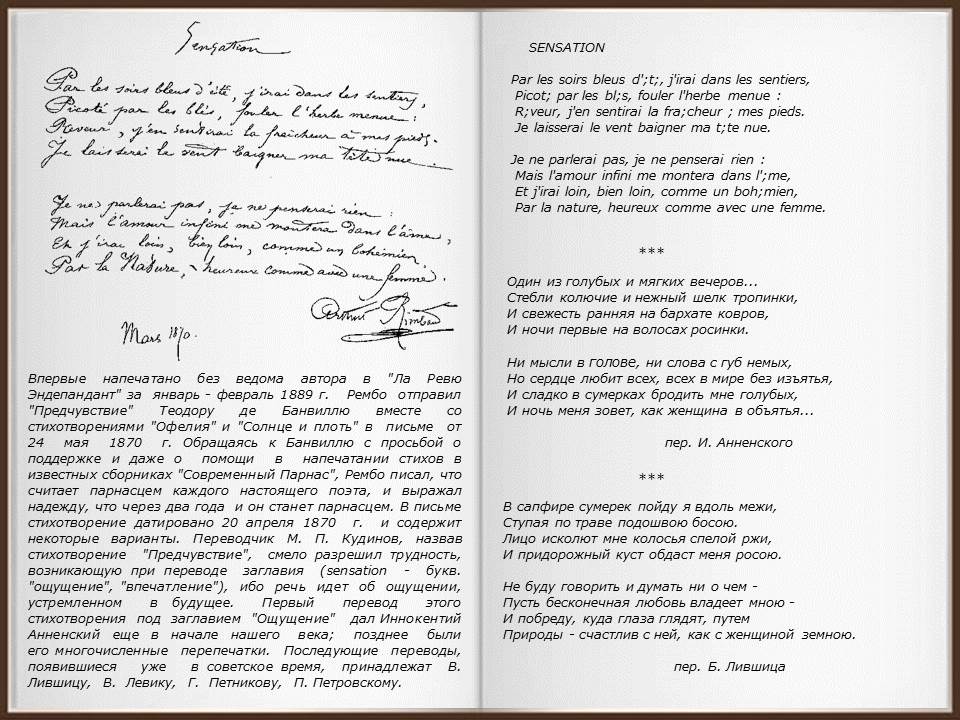 Sensation
Par les soirs bleus d'été, j'irai dans les sentiers,
Picoté par les blés, fouler l'herbe menue :
Rêveur, j'en sentirai la fraîcheur à mes pieds.
Je laisserai le vent baigner ma tête nue.
Je ne parlerai pas, je ne penserai rien :
Mais l'amour infini me montera dans l'âme,
Et j'irai loin, bien loin, comme un bohémien,
Par la Nature, - heureux comme avec une femme.
Arthur Rimbaud
Mars 1870.
Впервые напечатано без ведома автора в "Ла Ревю
Эндепандант" за январь - февраль 1889 г. Рембо отправил
"Предчувствие" Теодору де Банвиллю вместе со
стихотворениями "Офелия" и "Солнце и плоть" в письме от
24 мая 1870 г. Обращаясь к Банвиллю с просьбой о
поддержке и даже о помощи в напечатании стихов в
известных сборниках "Современный Парнас", Рембо писал, что
считает парнасцем каждого настоящего поэта, и выражал
надежду, что через два года и он станет парнасцем. В письме
стихотворение датировано 20 апреля 1870 г. и содержит
некоторые варианты. Переводчик М. П. Кудинов, назвав
стихотворение "Предчувствие", смело разрешил трудность,
возникающую при переводе заглавия (sensation - букв.
"ощущение", "впечатление"), ибо речь идет об ощущении,
устремленном в будущее. Первый перевод этого
стихотворения под заглавием "Ощущение" дал Иннокентий
Анненский еще в начале нашего века; позднее были
его многочисленные перепечатки. Последующие переводы,
появившиеся уже в советское время, принадлежат В.
Лившицу, В. Левику, Г. Петникову, П. Петровскому.
SENSATION
Par les soirs bleus d';t;, j'irai dans les sentiers,
Picot; par les bl;s, fouler l'herbe menue :
R;veur, j'en sentirai la fra;cheur ; mes pieds.
Je laisserai le vent baigner ma t;te nue.
Je ne parlerai pas, je ne penserai rien :
Mais l'amour infini me montera dans l';me,
Et j'irai loin, bien loin, comme un boh;mien,
Par la nature, heureux comme avec une femme.
***
Один из голубых и мягких вечеров...
Стебли колючие и нежный шелк тропинки,
И свежесть ранняя на бархате ковров,
И ночи первые на волосах росинки.
Ни мысли в голове, ни слова с губ немых,
Но сердце любит всех, всех в мире без изъятья,
И сладко в сумерках бродить мне голубых,
И ночь меня зовет, как женщина в объятья...
пер. И. Анненского
***
В сапфире сумерек пойду я вдоль межи,
Ступая по траве подошвою босою.
Лицо исколют мне колосья спелой ржи,
И придорожный куст обдаст меня росою.
Не буду говорить и думать ни о чем -
Пусть бесконечная любовь владеет мною -
И побреду, куда глаза глядят, путем
Природы - счастлив с ней, как с женщиной земною.
пер. Б. Лившица